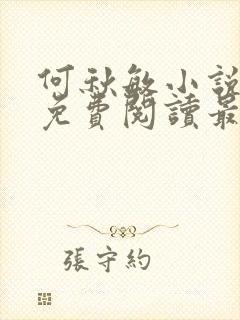 何秋敏小說
免費閱讀最
張守約